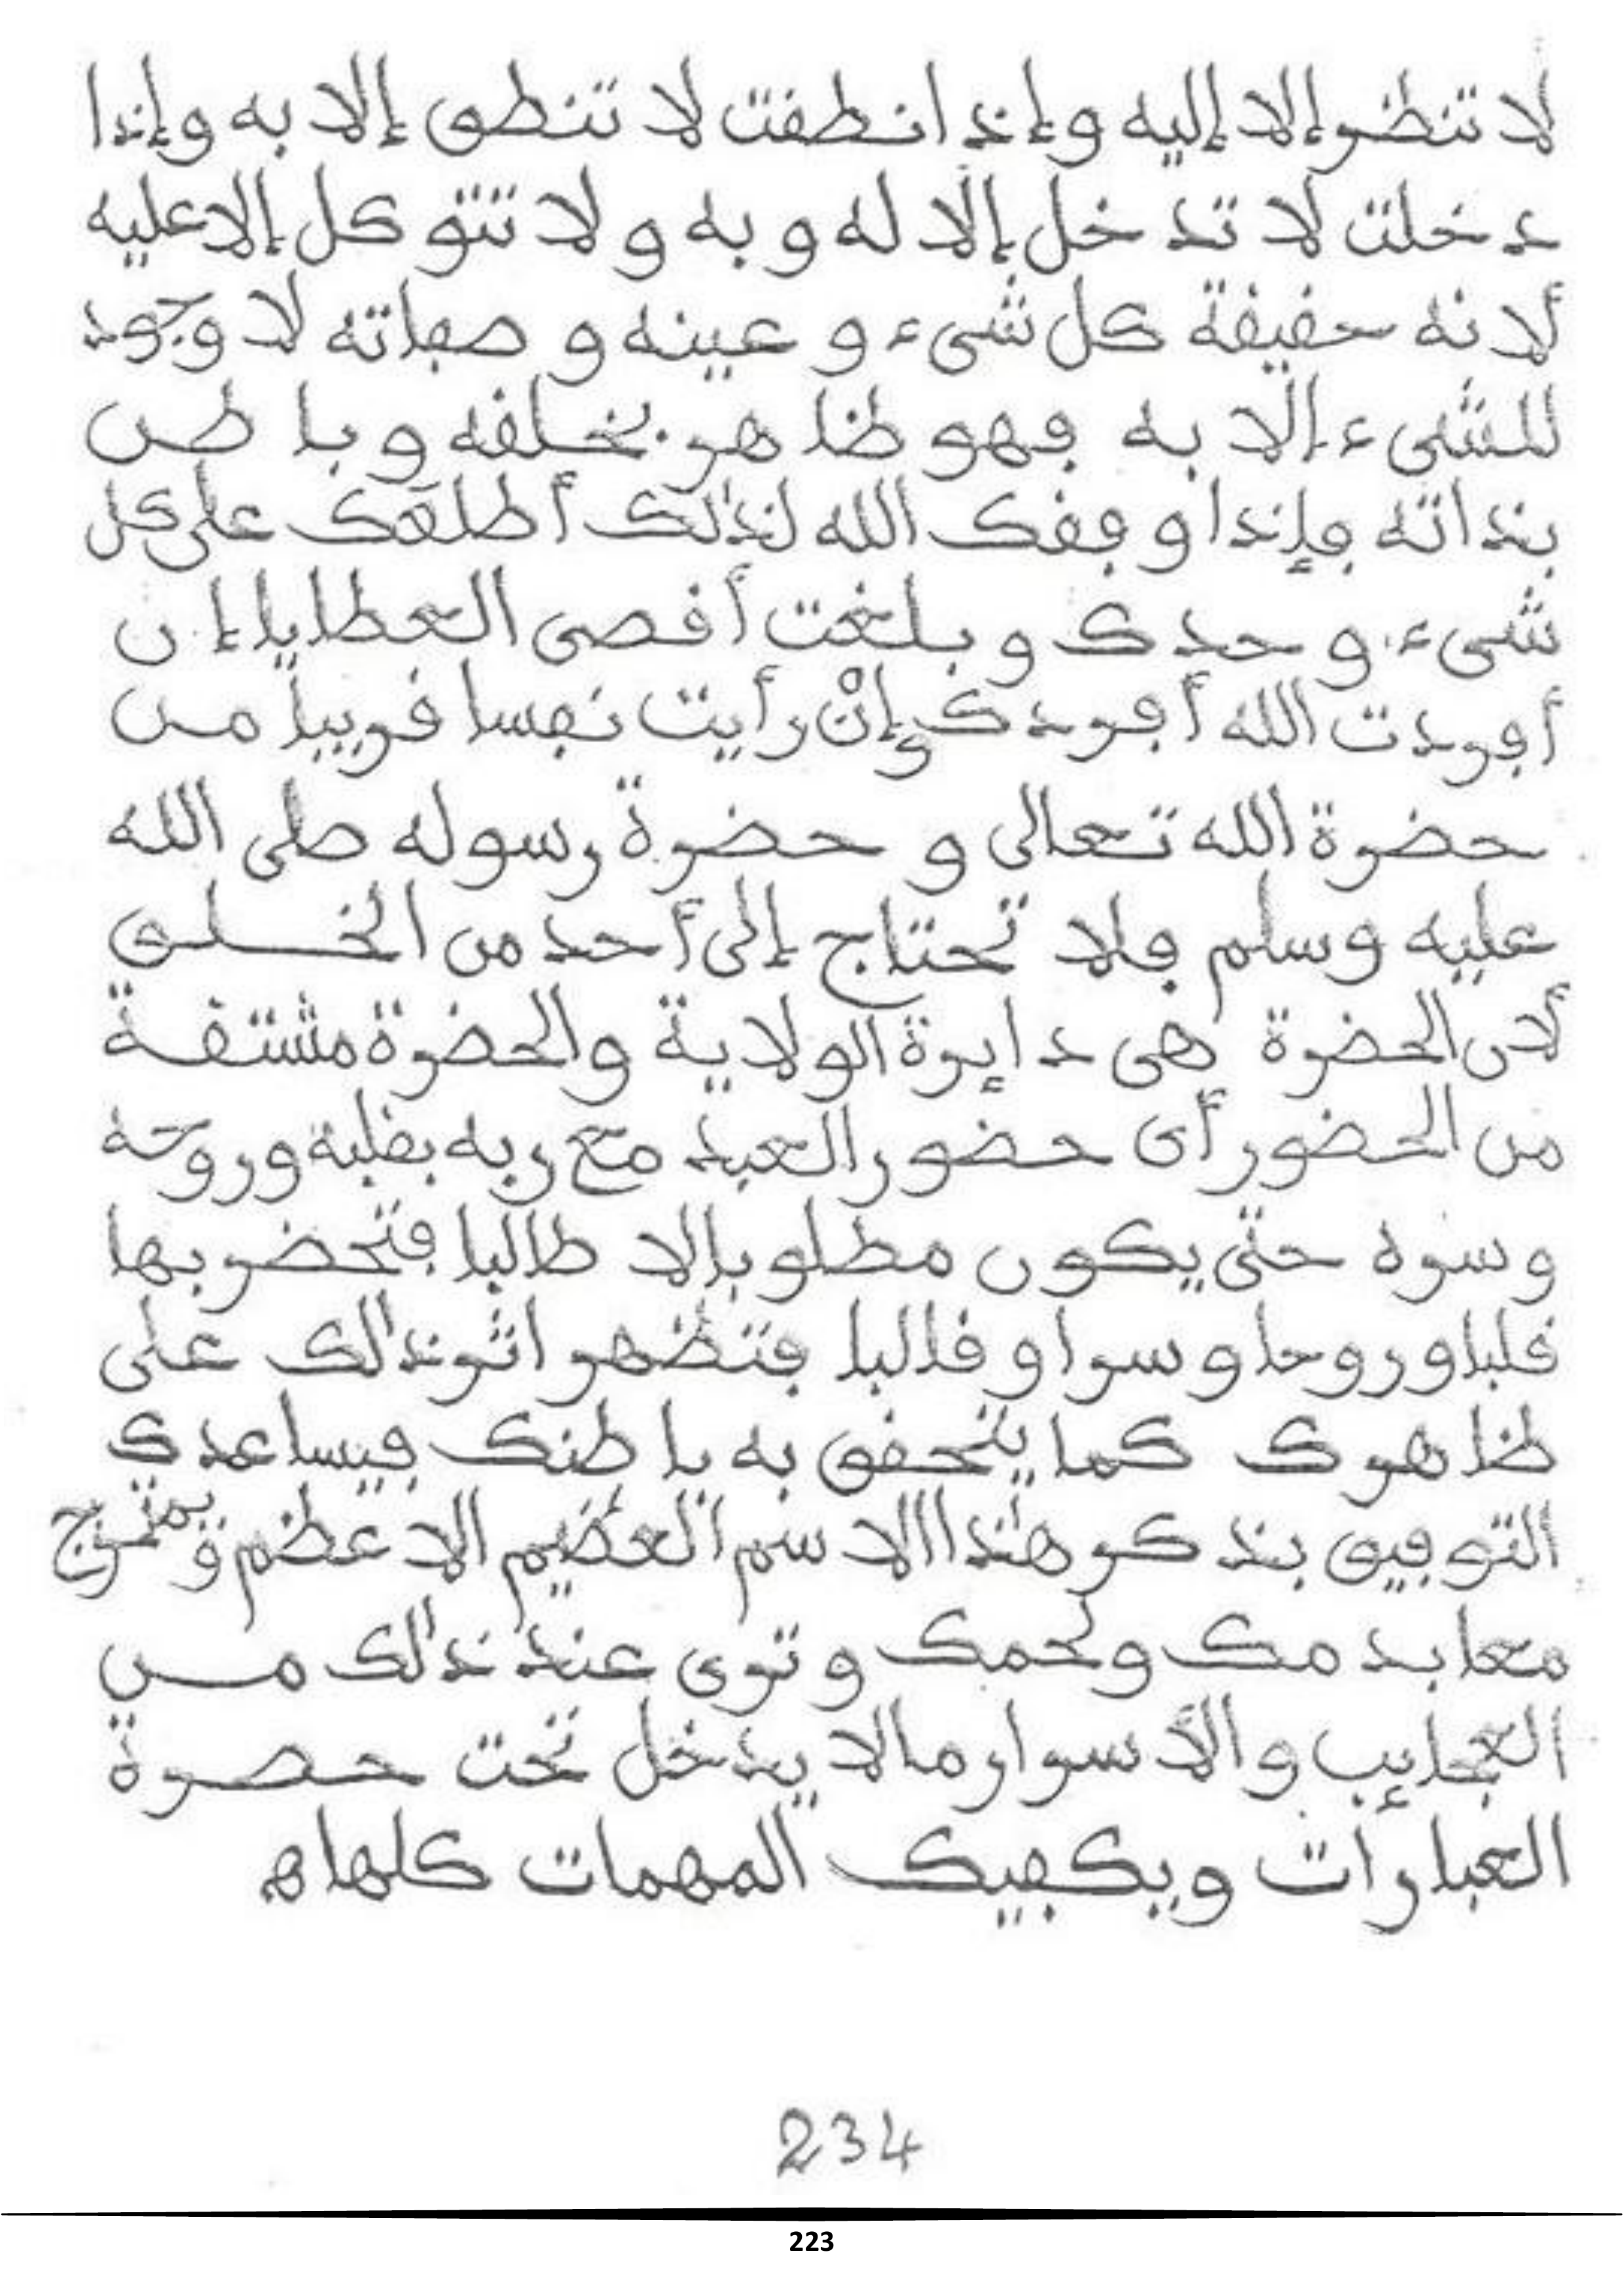 لا تنظر إلا إليه وإذا نطقت لا تنطق إلا به وإذا
دخلت لا تدخل إلا له وبه ولا تتوكل إلا عليه
لأنه حقيقة كل شيء وعينه وصفاته لا وجود
للشيء إلا به فهو ظاهر بخلقه وباطن
بذاته فإذا وفقك الله لذلك أطلعك على كل
شيء وحدك وبلغت أقصى العطايا إن
أفردت الله أفردك وإنْ رأيت نفسا قريبا من
حضرة الله تعالى وحضرة رسوله صلى الله
عليه وسلم فلا تحتاج إلى أحد من الخلق
لأن الحضرة هي دايرة الولاية والحضرة مشتقة
من الحضور أي حضور العبد مع ربه بقلبه وروحه
وسره حتى يكون مطلوبا لا طالبا فتحضر بها
قلبا وروحا وسرا وقالبا فتظهر اثر ذلك على
ظاهرك كما يتحقق به باطنك فيساعدك
التوفيق بذكر هذا الاسم العظيم الاعظم ويمتزج
معا بدمك ولحمك وترى عند ذلك من
العجايب والأسرار مالا يدخل تحت حصرة
العبارات ويكفيك المهمات كلها ه
234
223